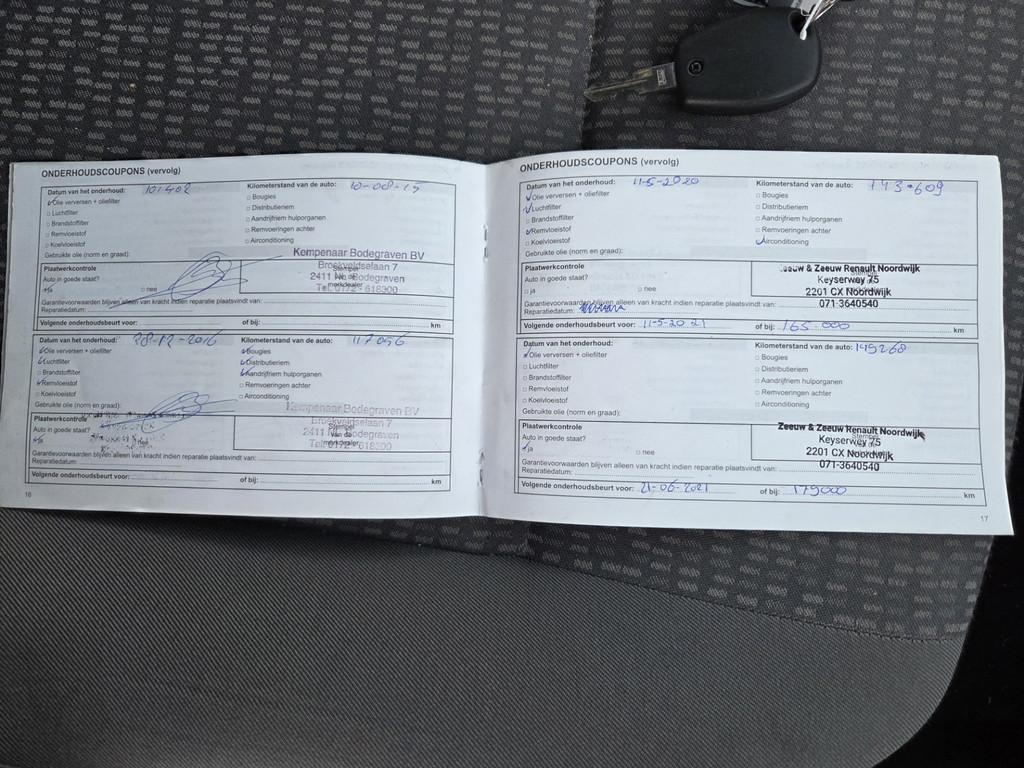 ONDERHOUDSCOUPONS (vervolg)
Datum van het onderhoud: 101402 Kilometerstand van de auto: 10-08-15
Olie verversen + oliefilter Bougies
Luchtfilter Distributieriem
Brandstoffilter Aandrijfriem hulporganen
Remvloeistof Remvoeringen achter
Koelvloeistof Airconditioning
Gebruikte olie (norm en graad):
Kempenaar Bodegraven BV
Plaatwerkcontrole Broekveldselaan 7
Auto in goede staat? Stempel van de merkdealer 2411 Bodegraven
ja nee Tel. 0172 - 618300
Garantievoorwaarden blijven alleen van kracht indien reparatie plaatsvindt van:
Reparatiedatum:
Volgende onderhoudsbeurt voor: of bij: km
Datum van het onderhoud: 28-12-2016 Kilometerstand van de auto: 117056
Olie verversen + oliefilter Bougies
Luchtfilter Distributieriem
Brandstoffilter Aandrijfriem hulporganen
Remvloeistof Remvoeringen achter
Koelvloeistof Airconditioning
Gebruikte olie (norm en graad):
Kempenaar Bodegraven BV
Plaatwerkcontrole Broekveldselaan 7
Auto in goede staat? Stempel van de merkdealer 2411 Bodegraven
ja Tel. 0172 - 618300
Garantievoorwaarden blijven alleen van kracht indien reparatie plaatsvindt van:
Reparatiedatum:
Volgende onderhoudsbeurt voor: of bij: km
16
ONDERHOUDSCOUPONS (vervolg)
Datum van het onderhoud: 11-5-2020 Kilometerstand van de auto: 143-609
Olie verversen + oliefilter Bougies
Luchtfilter Distributieriem
Brandstoffilter Aandrijfriem hulporganen
Remvloeistof Remvoeringen achter
Koelvloeistof Airconditioning
Gebruikte olie (norm en graad):
Plaatwerkcontrole Zeeuw & Zeeuw Renault Noordwijk
Auto in goede staat? Keyserwey 75
ja nee 2201 CX Noordwijk
Garantievoorwaarden blijven alleen van kracht indien reparatie plaatsvindt van: 071-3640540
Reparatiedatum:
Volgende onderhoudsbeurt voor: 11-5-2021 of bij: 165.000 km
Datum van het onderhoud: Kilometerstand van de auto: 149268
Olie verversen + oliefilter Bougies
Luchtfilter Distributieriem
Brandstoffilter Aandrijfriem hulporganen
Remvloeistof Remvoeringen achter
Koelvloeistof Airconditioning
Gebruikte olie (norm en graad):
Plaatwerkcontrole Zeeuw & Zeeuw Renault Noordwijk
Auto in goede staat? Keyserwey 75
ja nee 2201 CX Noordwijk
Garantievoorwaarden blijven alleen van kracht indien reparatie plaatsvindt van: 071-3640540
Reparatiedatum:
Volgende onderhoudsbeurt voor: 21-06-2021 of bij: 179000 km
17